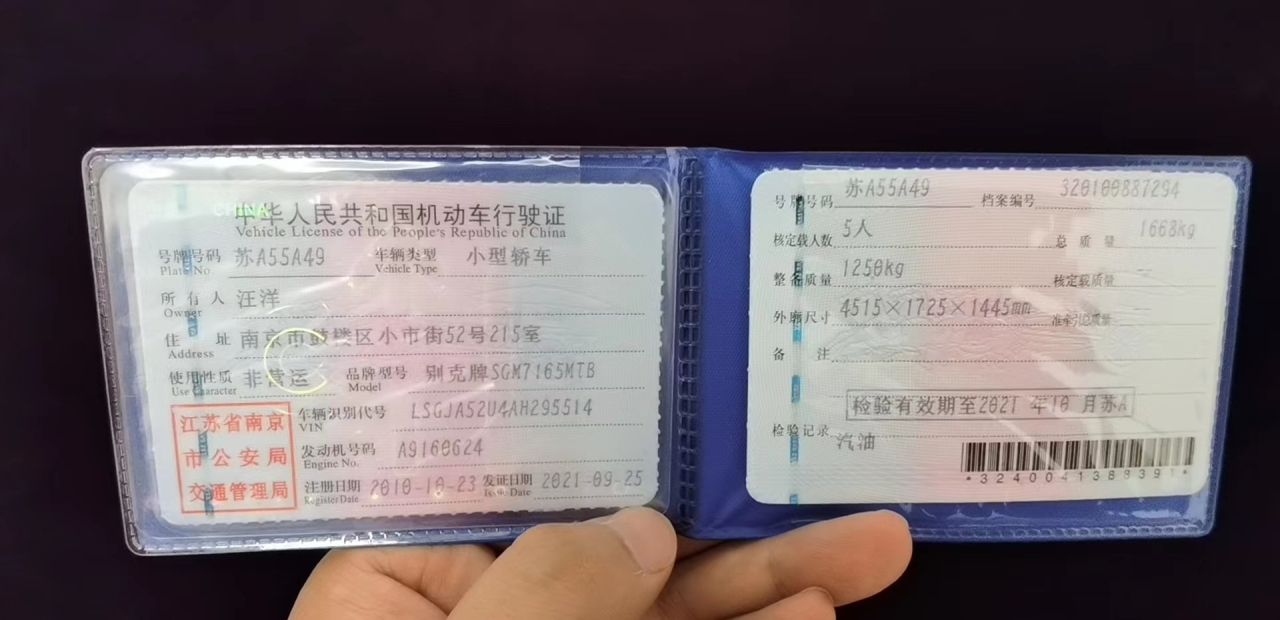 CHINA
中华人民共和国机动车行驶证
Vehicle License of the People's Republic of China
号牌号码 苏A55A49 车辆类型 小型轿车
Plate No Vehicle Type
所有人 汪洋
Owner
住址 南京市鼓楼区小市街52号215室
Address
使用性质 非营运 品牌型号 别克牌SGM7165MTB
Use Character Model
江苏省南京
市公安局
交通管理局
车辆识别代号 LSGJA52U4AH295514
VIN
发动机号码 A9160624
Engine No.
注册日期 2010-10-23 发证日期 2021-09-25
Register Date Issue Date
号牌号码 苏A55A49 档案编号 320100887294
核定载人数 5人 总质量 1668kg
整备质量 1250kg 核定载质量 --
外廓尺寸 4515×1725×1445mm 准牵引总质量
备注
检验有效期至2021 年10 月苏A
检验记录
汽油
*3240041388391*